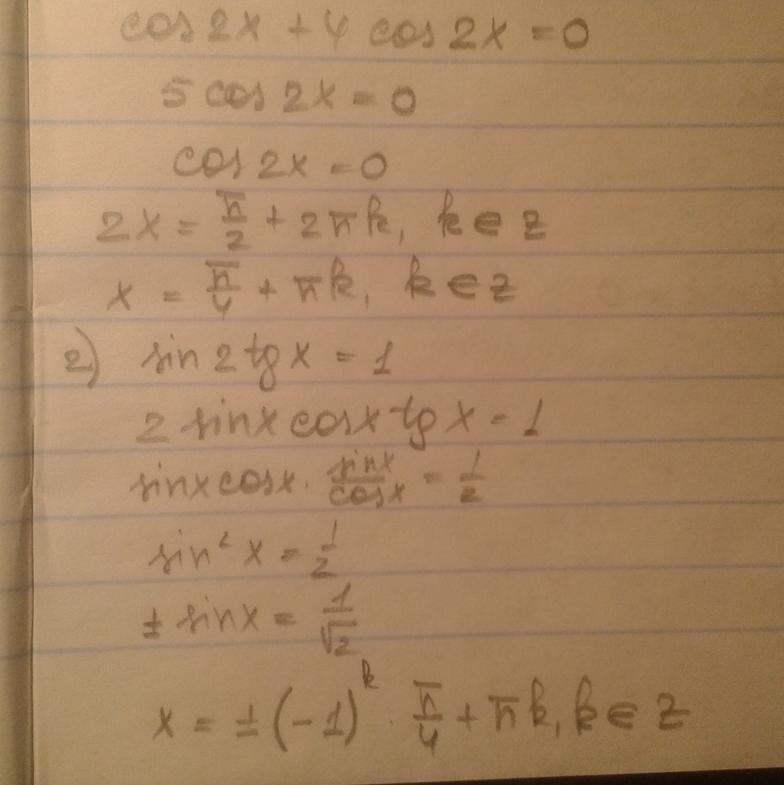 cos 2x + 4 cos 2x = 0
5 cos 2x = 0
cos 2x = 0
2x = π/2 + 2πk, k ∈ z
x = π/4 + πk, k ∈ z
2) sin 2 tg x = 1
2 sinx cosx tg x = 1
sinx cosx · sinx/cosx = 1/2
sin² x = 1/2
± sinx = 1/√2
x = ± (-1)^k · π/4 + πk, k ∈ z